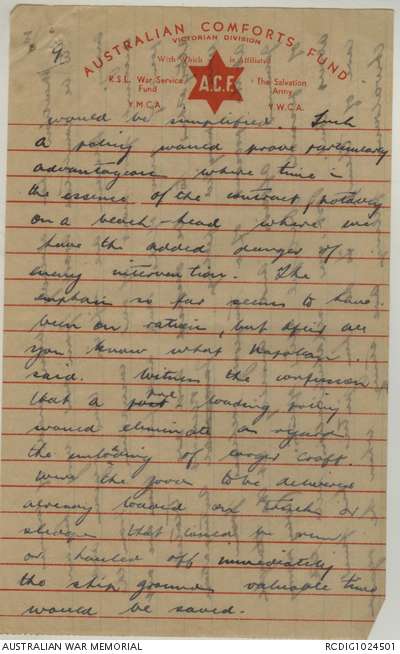 93
AUSTRALIAN COMFORTS FUND
VICTORIAN DIVISION
With Which is Affiliated
R.S.L. War Service Fund
The Salvation Army
A.C.F.
Y.M.C.A.
Y.W.C.A.
would be simplified. Such
a policy would prove particularly
advantageous where time is
the essence of the contract, notably
on a beach-head, where we
have the added danger of
enemy intervention. The
emphasis so far seems to have
been on rations, but after all
you know what Napoleon
said. Witness the confusion
that a pre loading policy
would eliminate as regards
the unloading of larger craft.
Were the goods to be delivered
already loaded on trucks or
sledges that could be run
or hauled off immediately
the ship grounds valuable time
would be saved.
AUSTRALIAN WAR MEMORIAL
RCDIG1024501